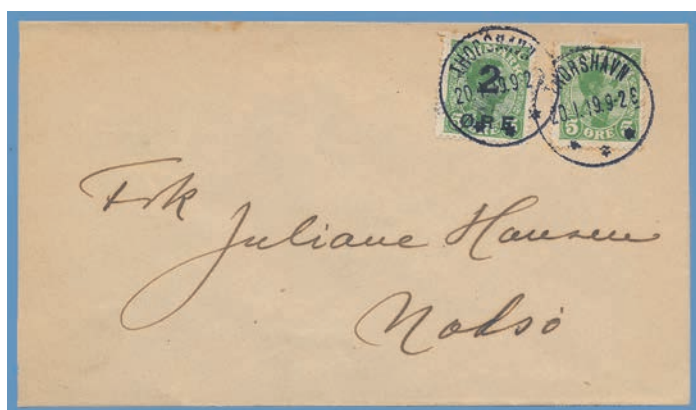 THORSHAVN
20.1.19.9-2
2
ØRE
THORSHAVN
20.1.19.9-2 E
5 ØRE 5
Frk
Juliane Hansen
Nolsö